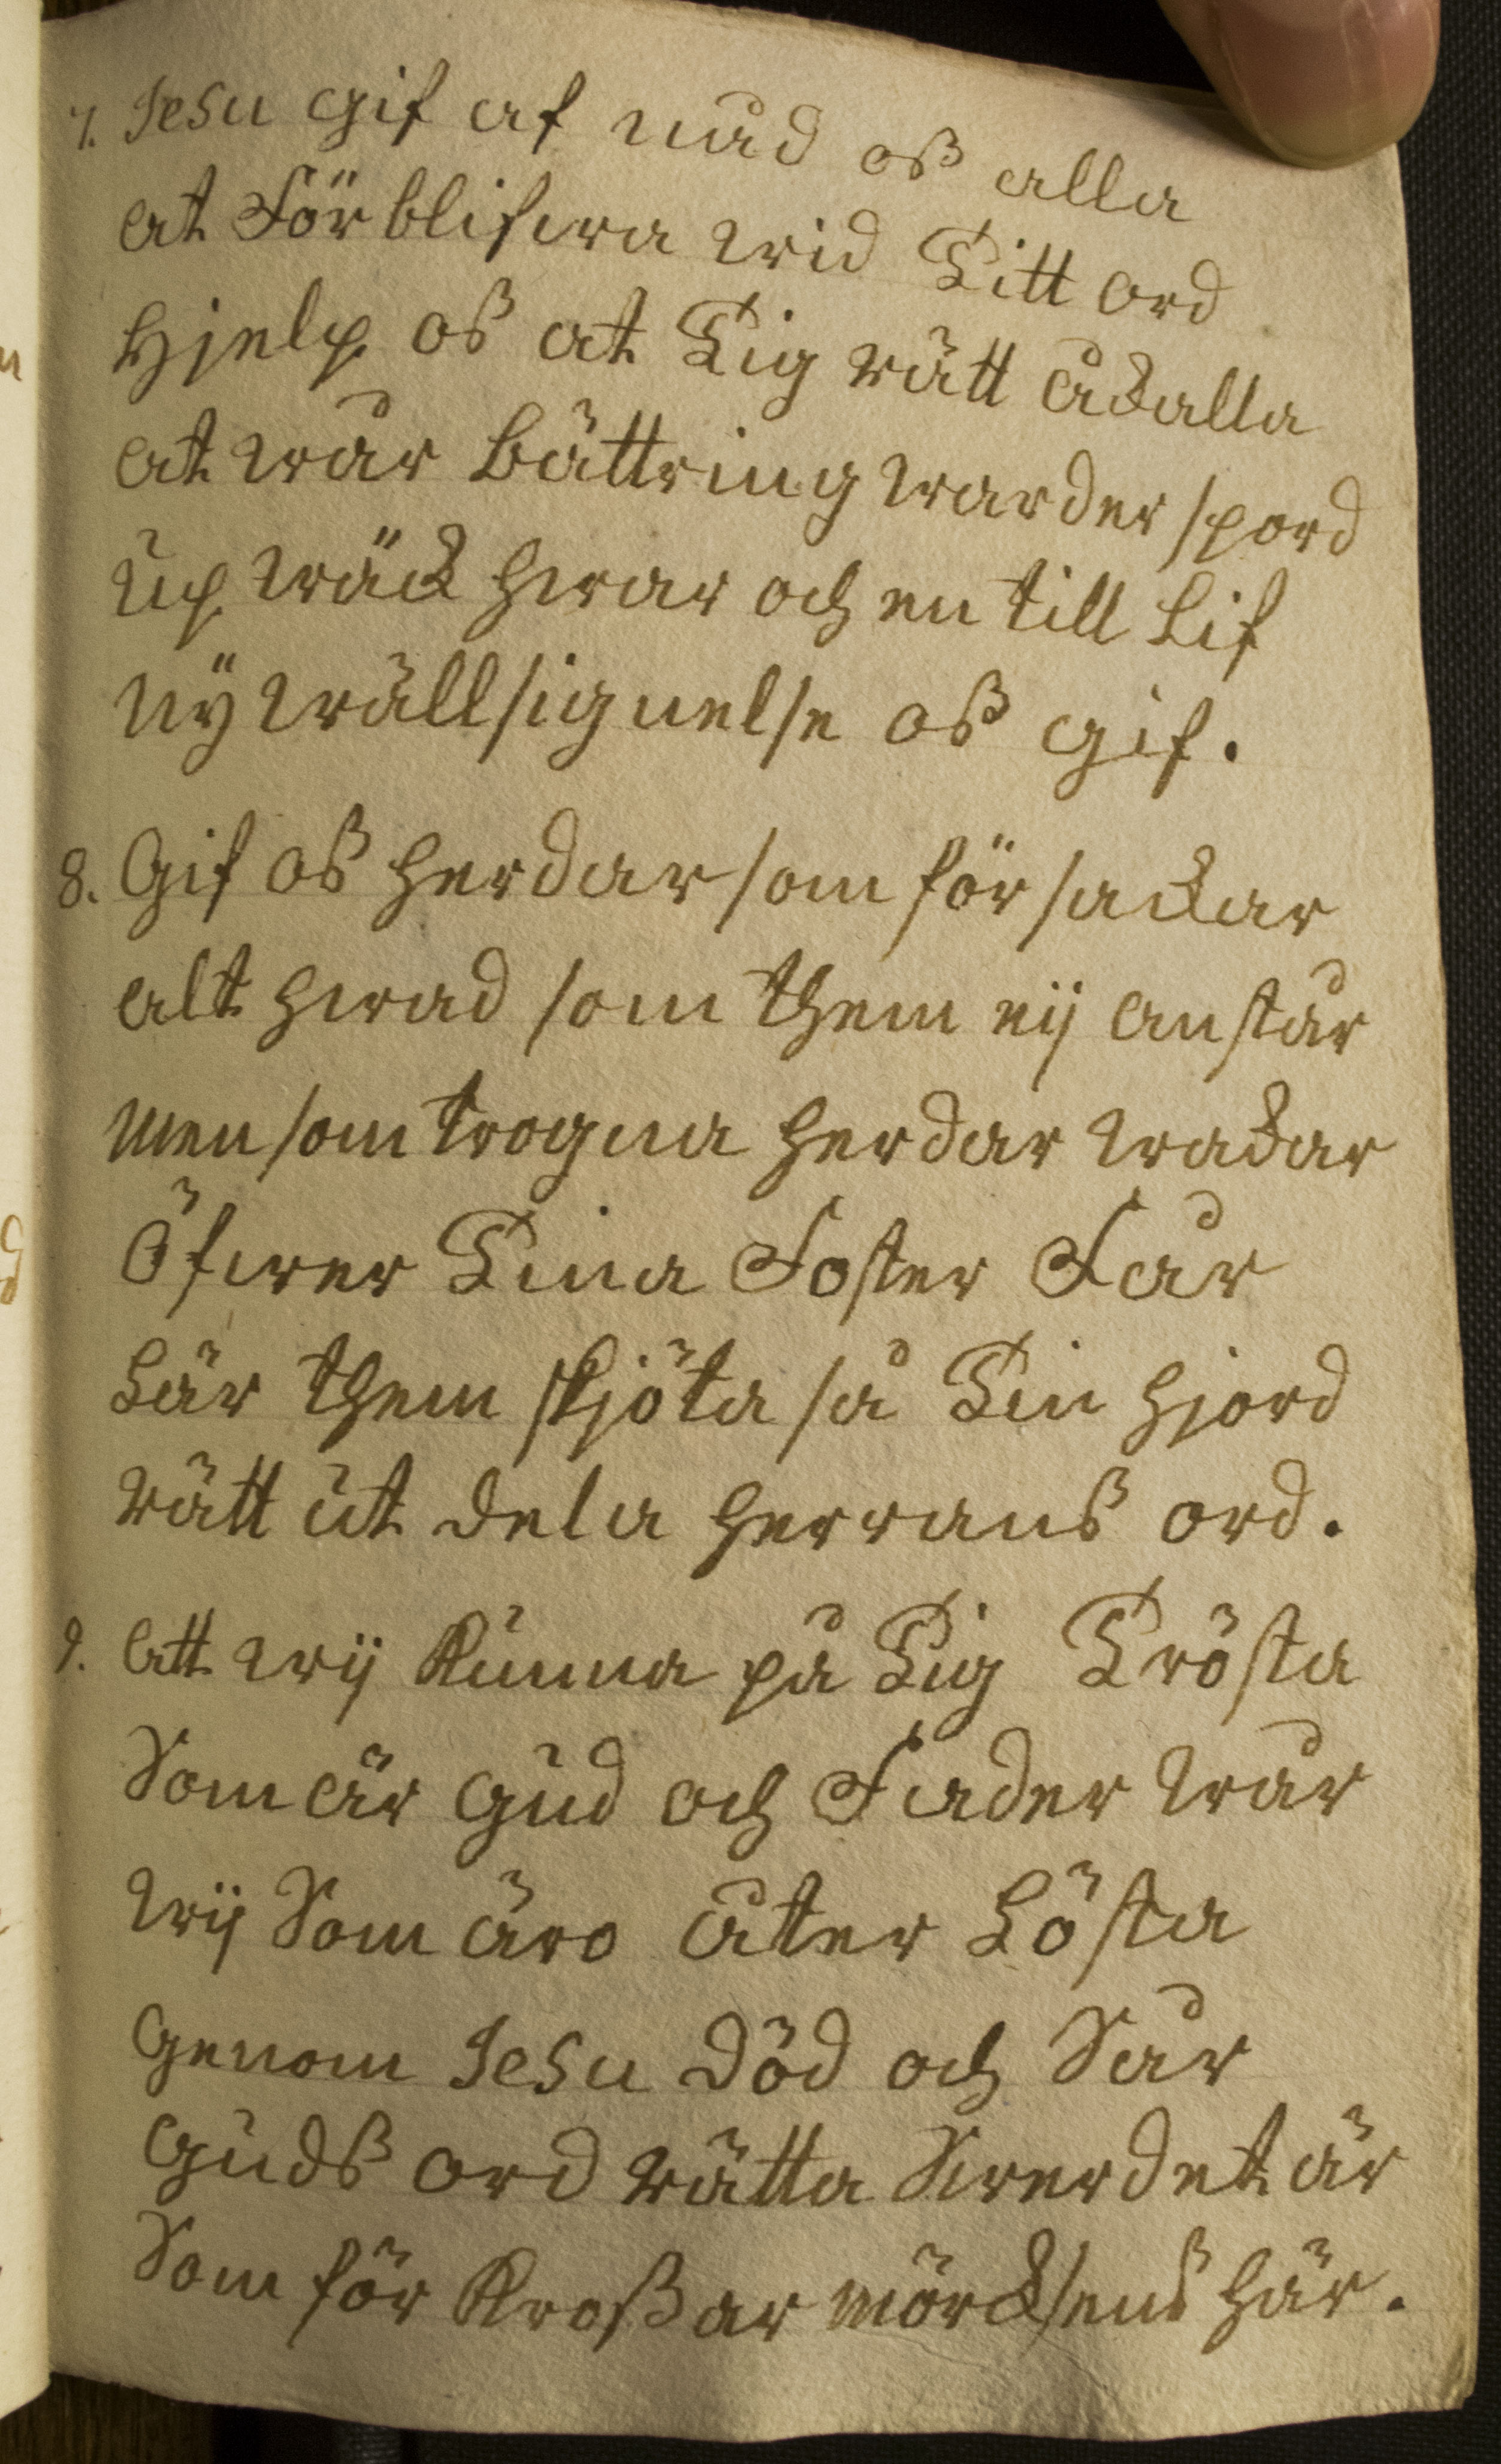 7. Jesu gif af nåd oß alla
at Förblifwa wid Titt ord
Hjelp oß at Tig rätt åkalla
at wår Bättring warder spord
Up wäck hwar och en till Lif
Ny wällsignelse oß gif.
8. Gif oß herdar som försakar
alt hwad som them eij anstår
men som trogna herdar wakar
Öfwer Tina Foster Får
Lär them skjöta så Tin hjord
rätt ut dela herrans ord.
9. Att wij kunna på Tig Trösta
Som är Gud och Fader wår
wij Som äro Åter Lösta
Genom Jesu Död och Sår
Guds ord rätta Swerdet är
Som förkroßar mörcksens här.